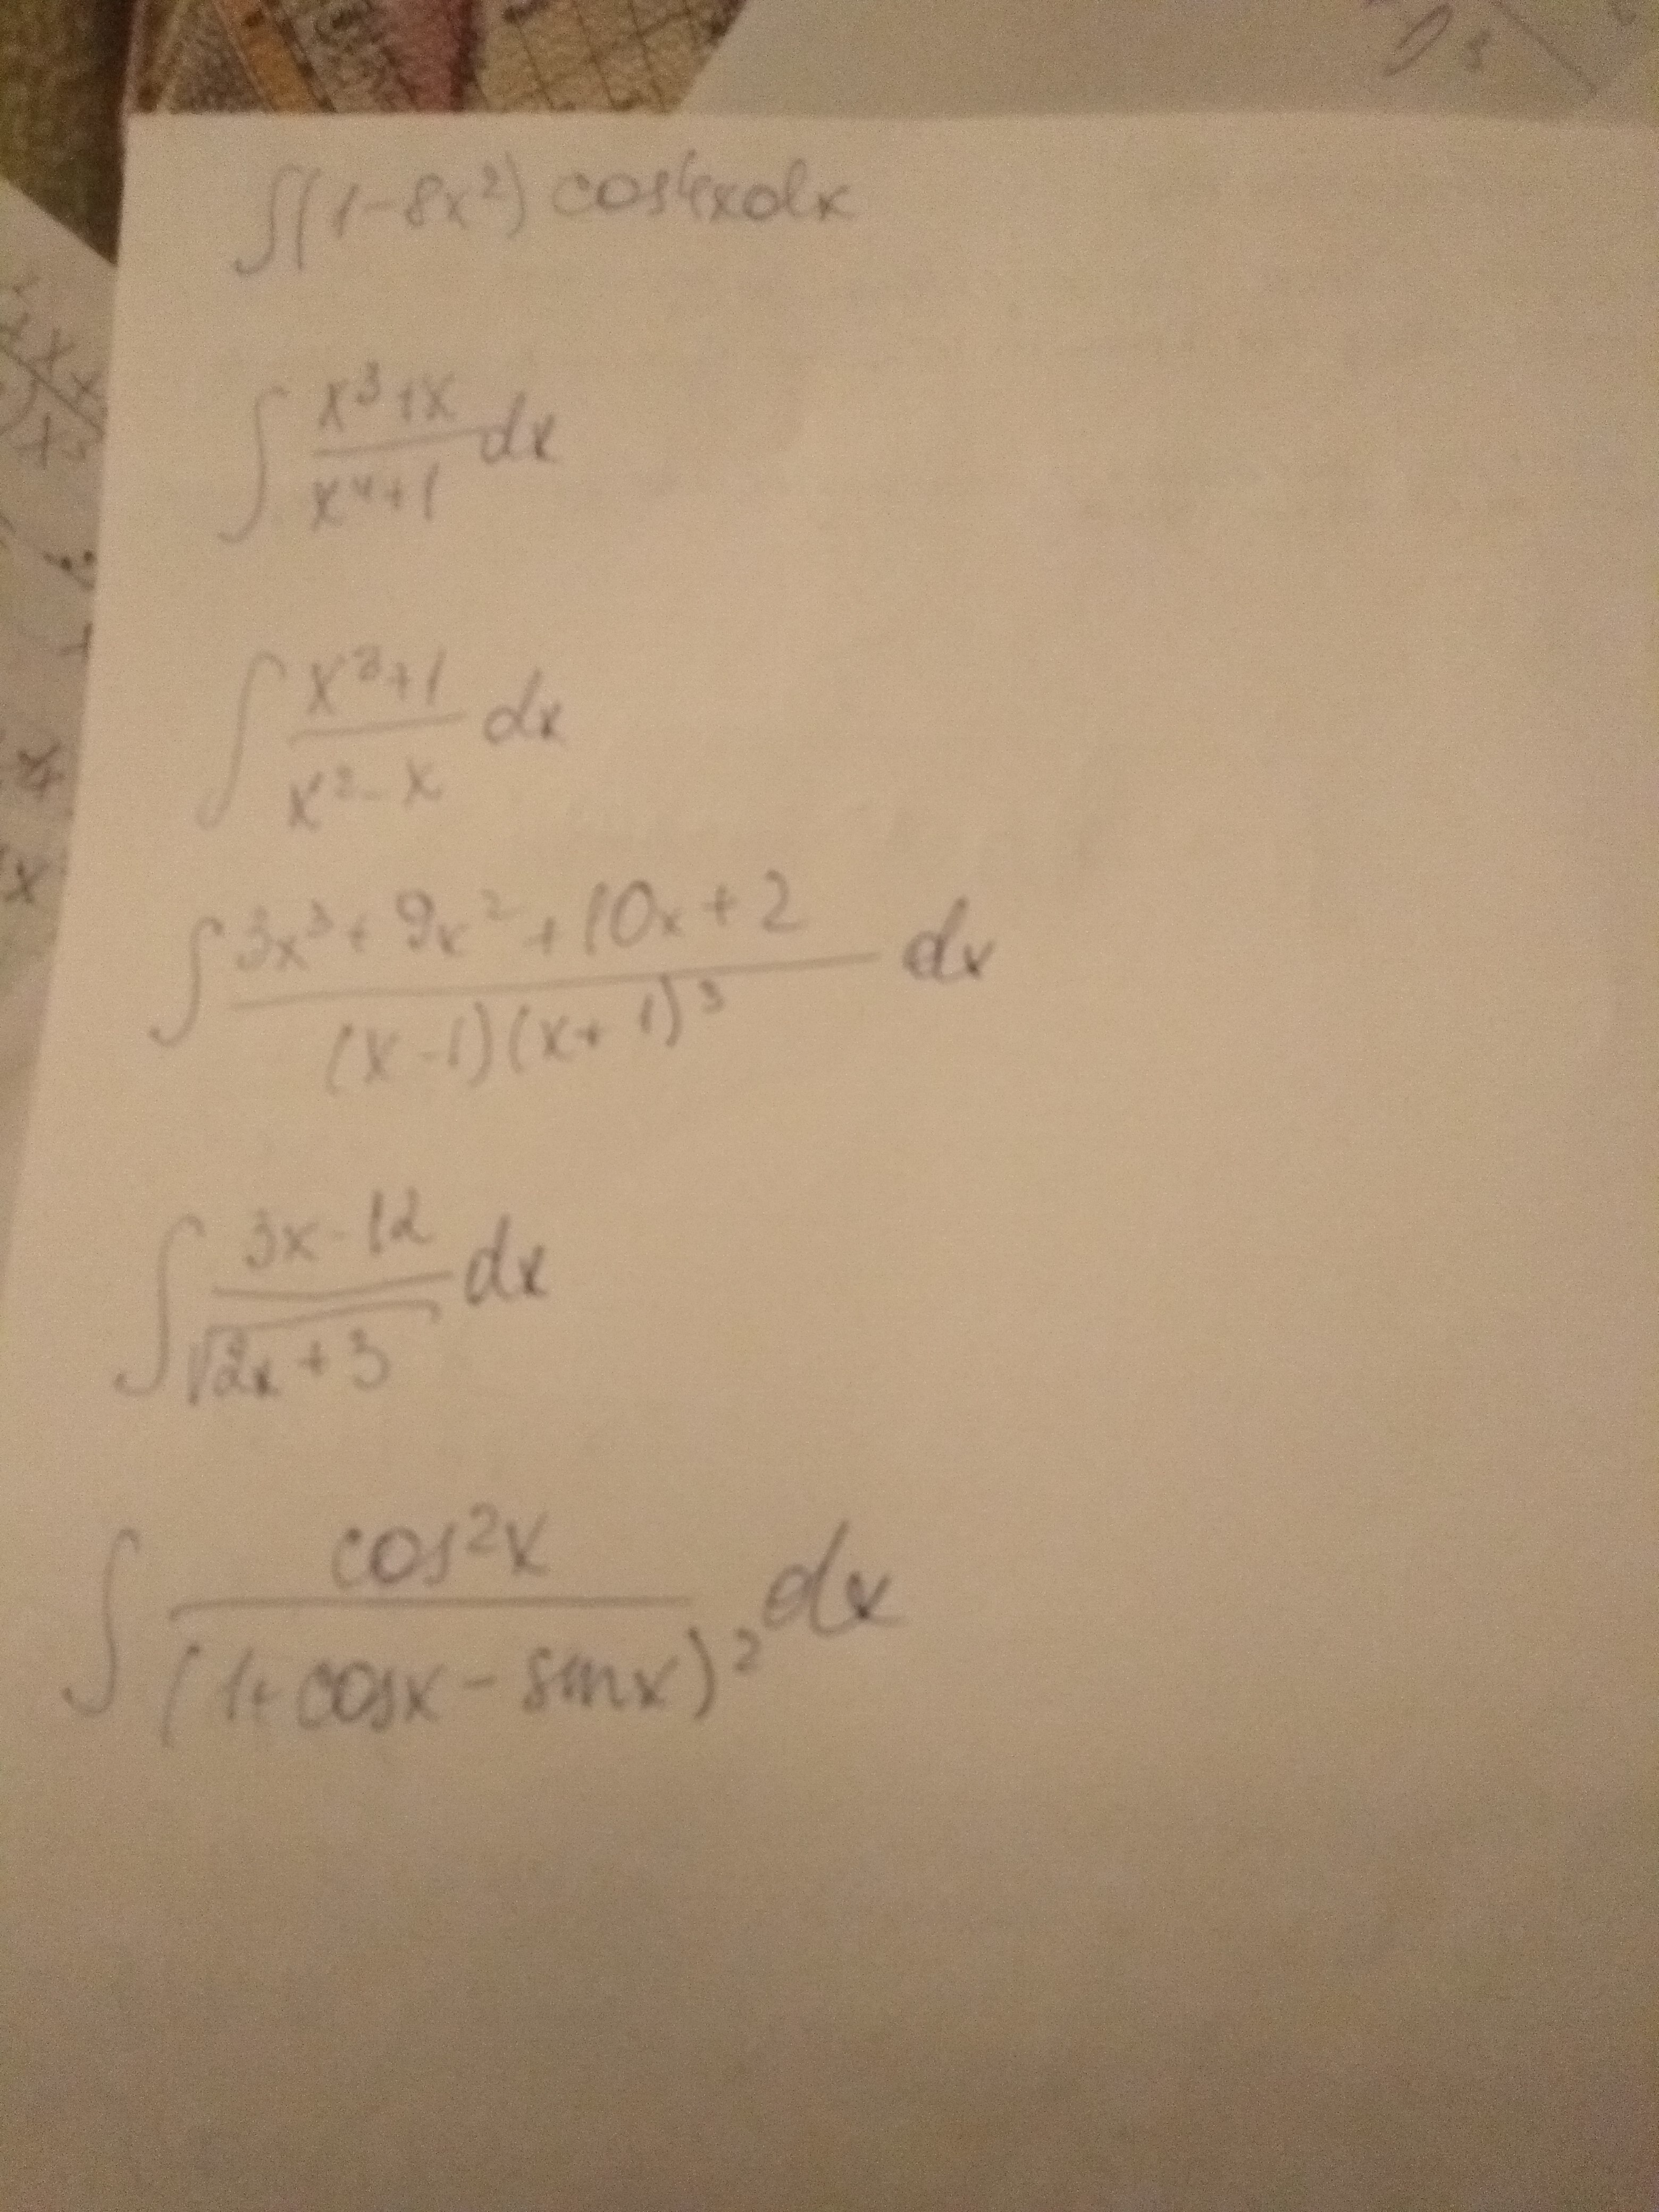 ∫(1-8x²) cos4xdx
∫ x³+x / x⁴+1 dx
∫ x³+1 / x²-x dx
∫ 3x³+9x²+10x+2 / (x-1)(x+1)³ dx
∫ 3x-12 / √2x+3 dx
∫ cos²x / (1+cosx-sinx)² dx